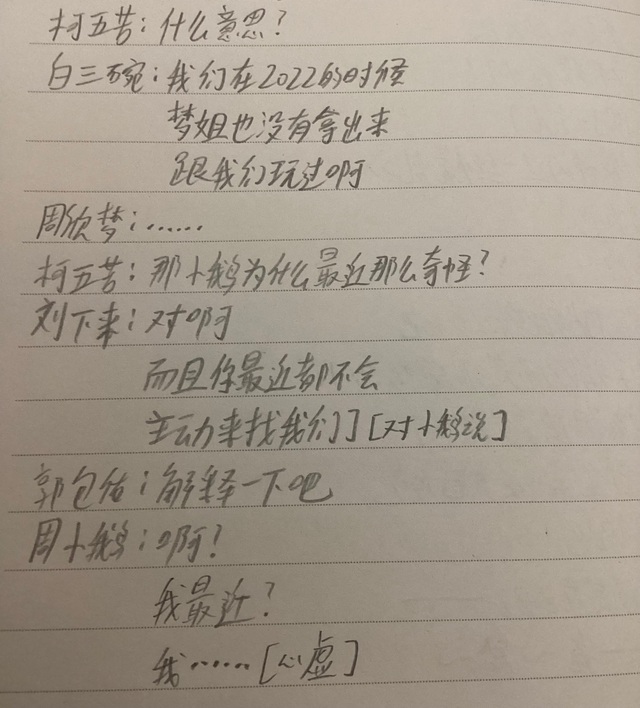 柯五苦：什么意思？
白三碗：我们在2022的时候
梦姐也没有拿出来
跟我们玩过啊
周欣梦：……
柯五苦：那小鹅为什么最近那么奇怪？
刘下来：对啊
而且你最近都不会
主动来找我们了[对小鹅说]
郭包佑：解释一下吧
周小鹅：啊？
我最近？
我……[心虚]